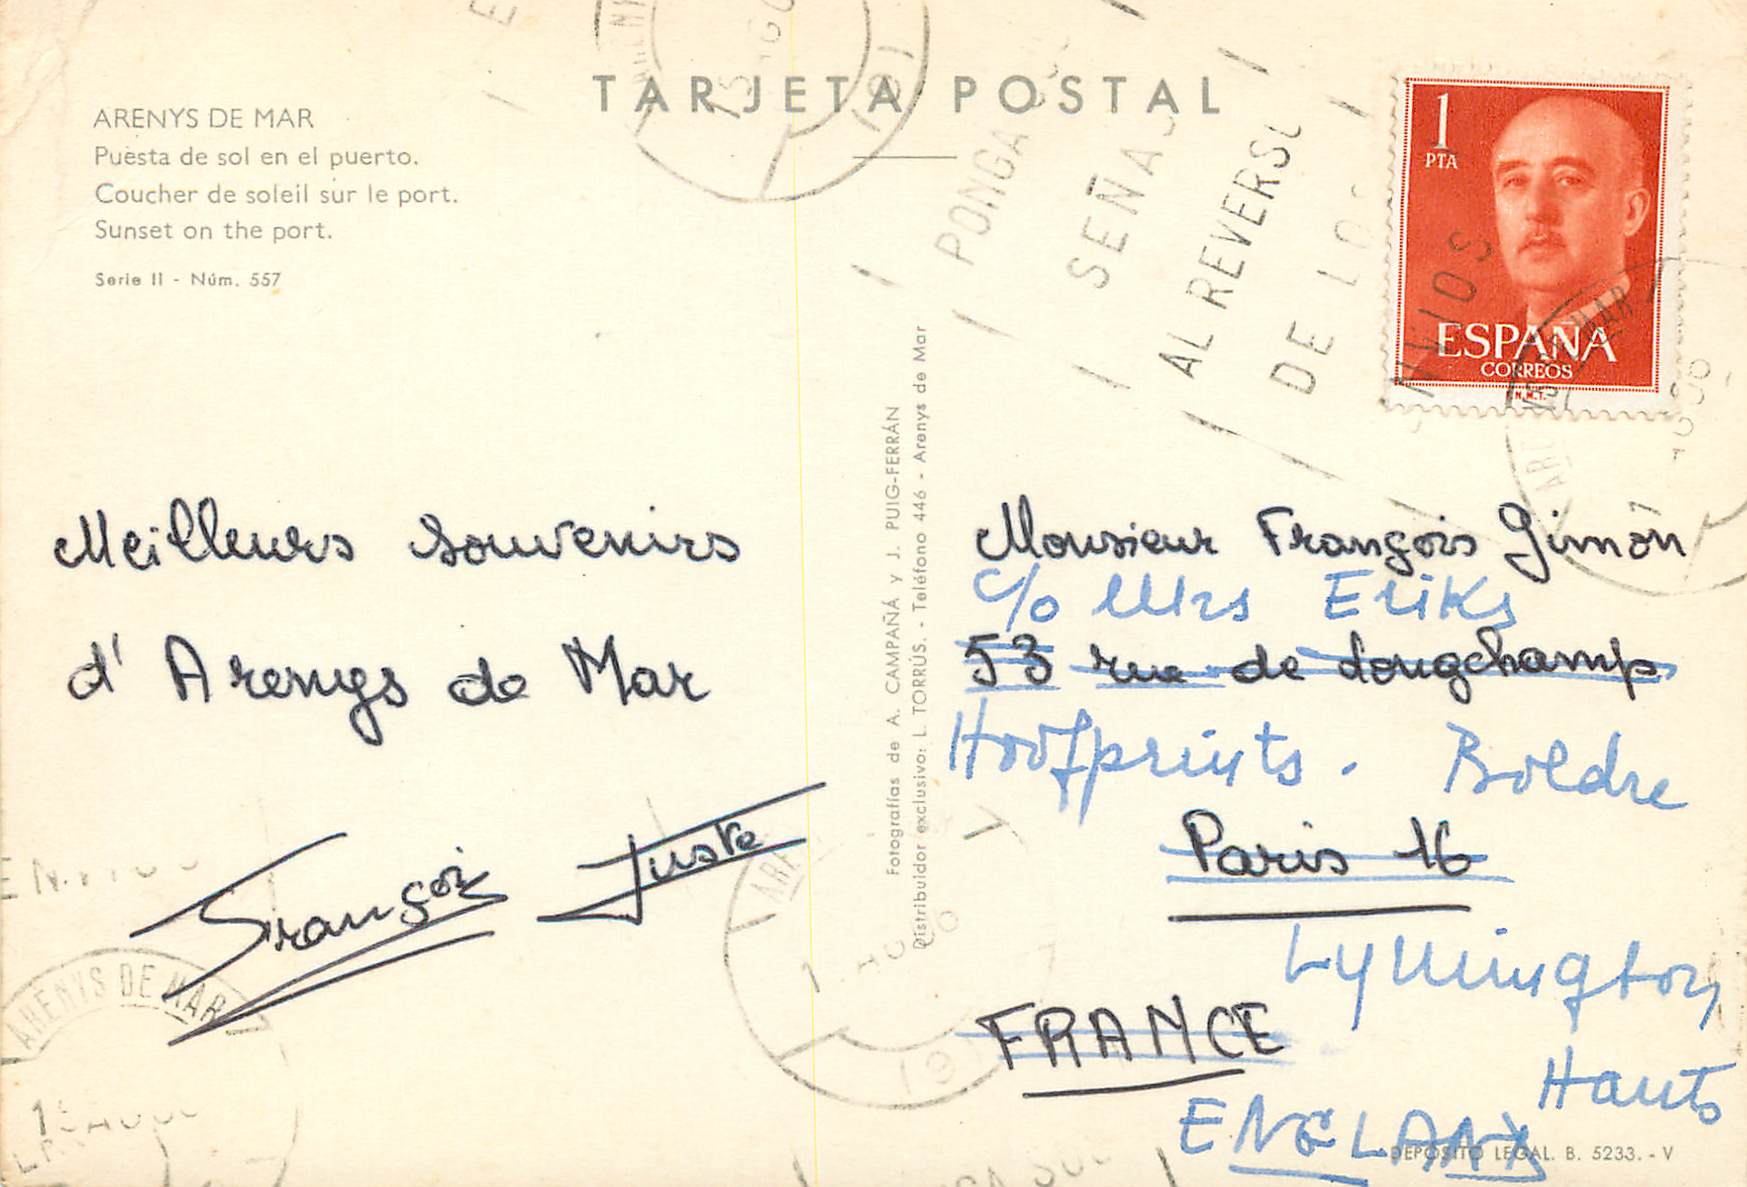 TARJETA POSTAL
ARENYS DE MAR
Puesta de sol en el puerto.
Coucher de soleil sur le port.
Sunset on the port.
Serie II - Núm. 557
Meilleurs souvenirs
d' Arenys de Mar
François Juste
Fotografías de A. CAMPAÑÁ y J. PUIG-FERRÁN
Distribuidor exclusivo: L. TORRÚS. - Teléfono 446 - Arenys de Mar
PONGA
SEÑAS
AL REVERSO
DE LOS
ENVIOS
1
PTA
ESPAÑA
CORREOS
F.N.M.T.
Monsieur François Gimon
c/o Mrs Eriks
53 rue de Longchamp
Hoofprints. Boldre
Paris 16
Lymington
FRANCE
Hants
ENGLAND
DEPÓSITO LEGAL. B. 5233. - V
ARENYS DE MAR